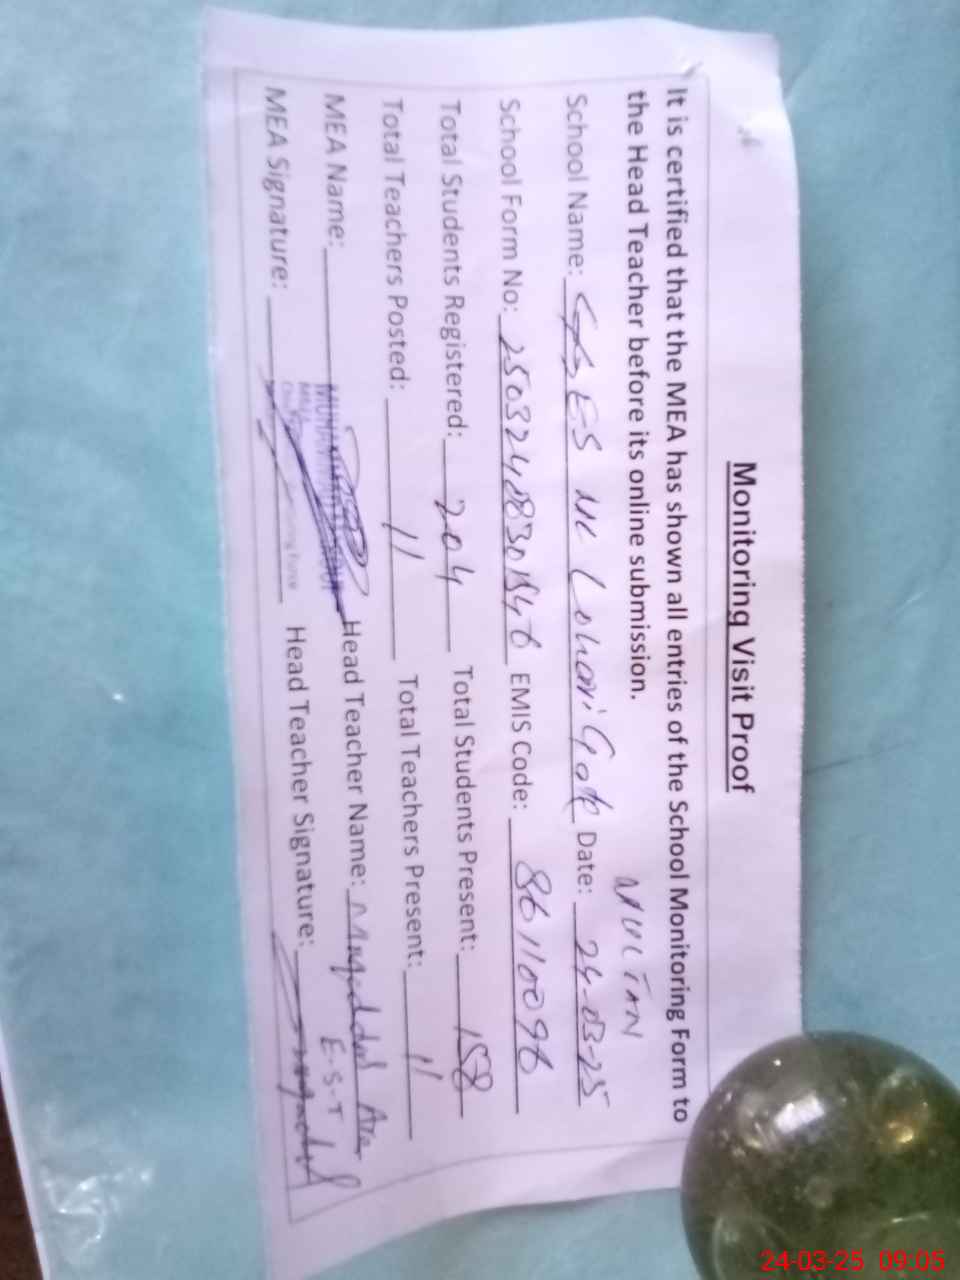 Monitoring Visit Proof
It is certified that the MEA has shown all entries of the School Monitoring Form to
the Head Teacher before its online submission.
MULTAN
School Name: GGES Lohari Gate Date: 24-03-25
School Form No: EMIS Code:
Total Students Registered: 204 Total Students Present: 158
Total Teachers Posted: 11 Total Teachers Present: 11
MEA Name: Head Teacher Name:
E.S.T
MEA Signature: Head Teacher Signature:
24-03-25 09:05